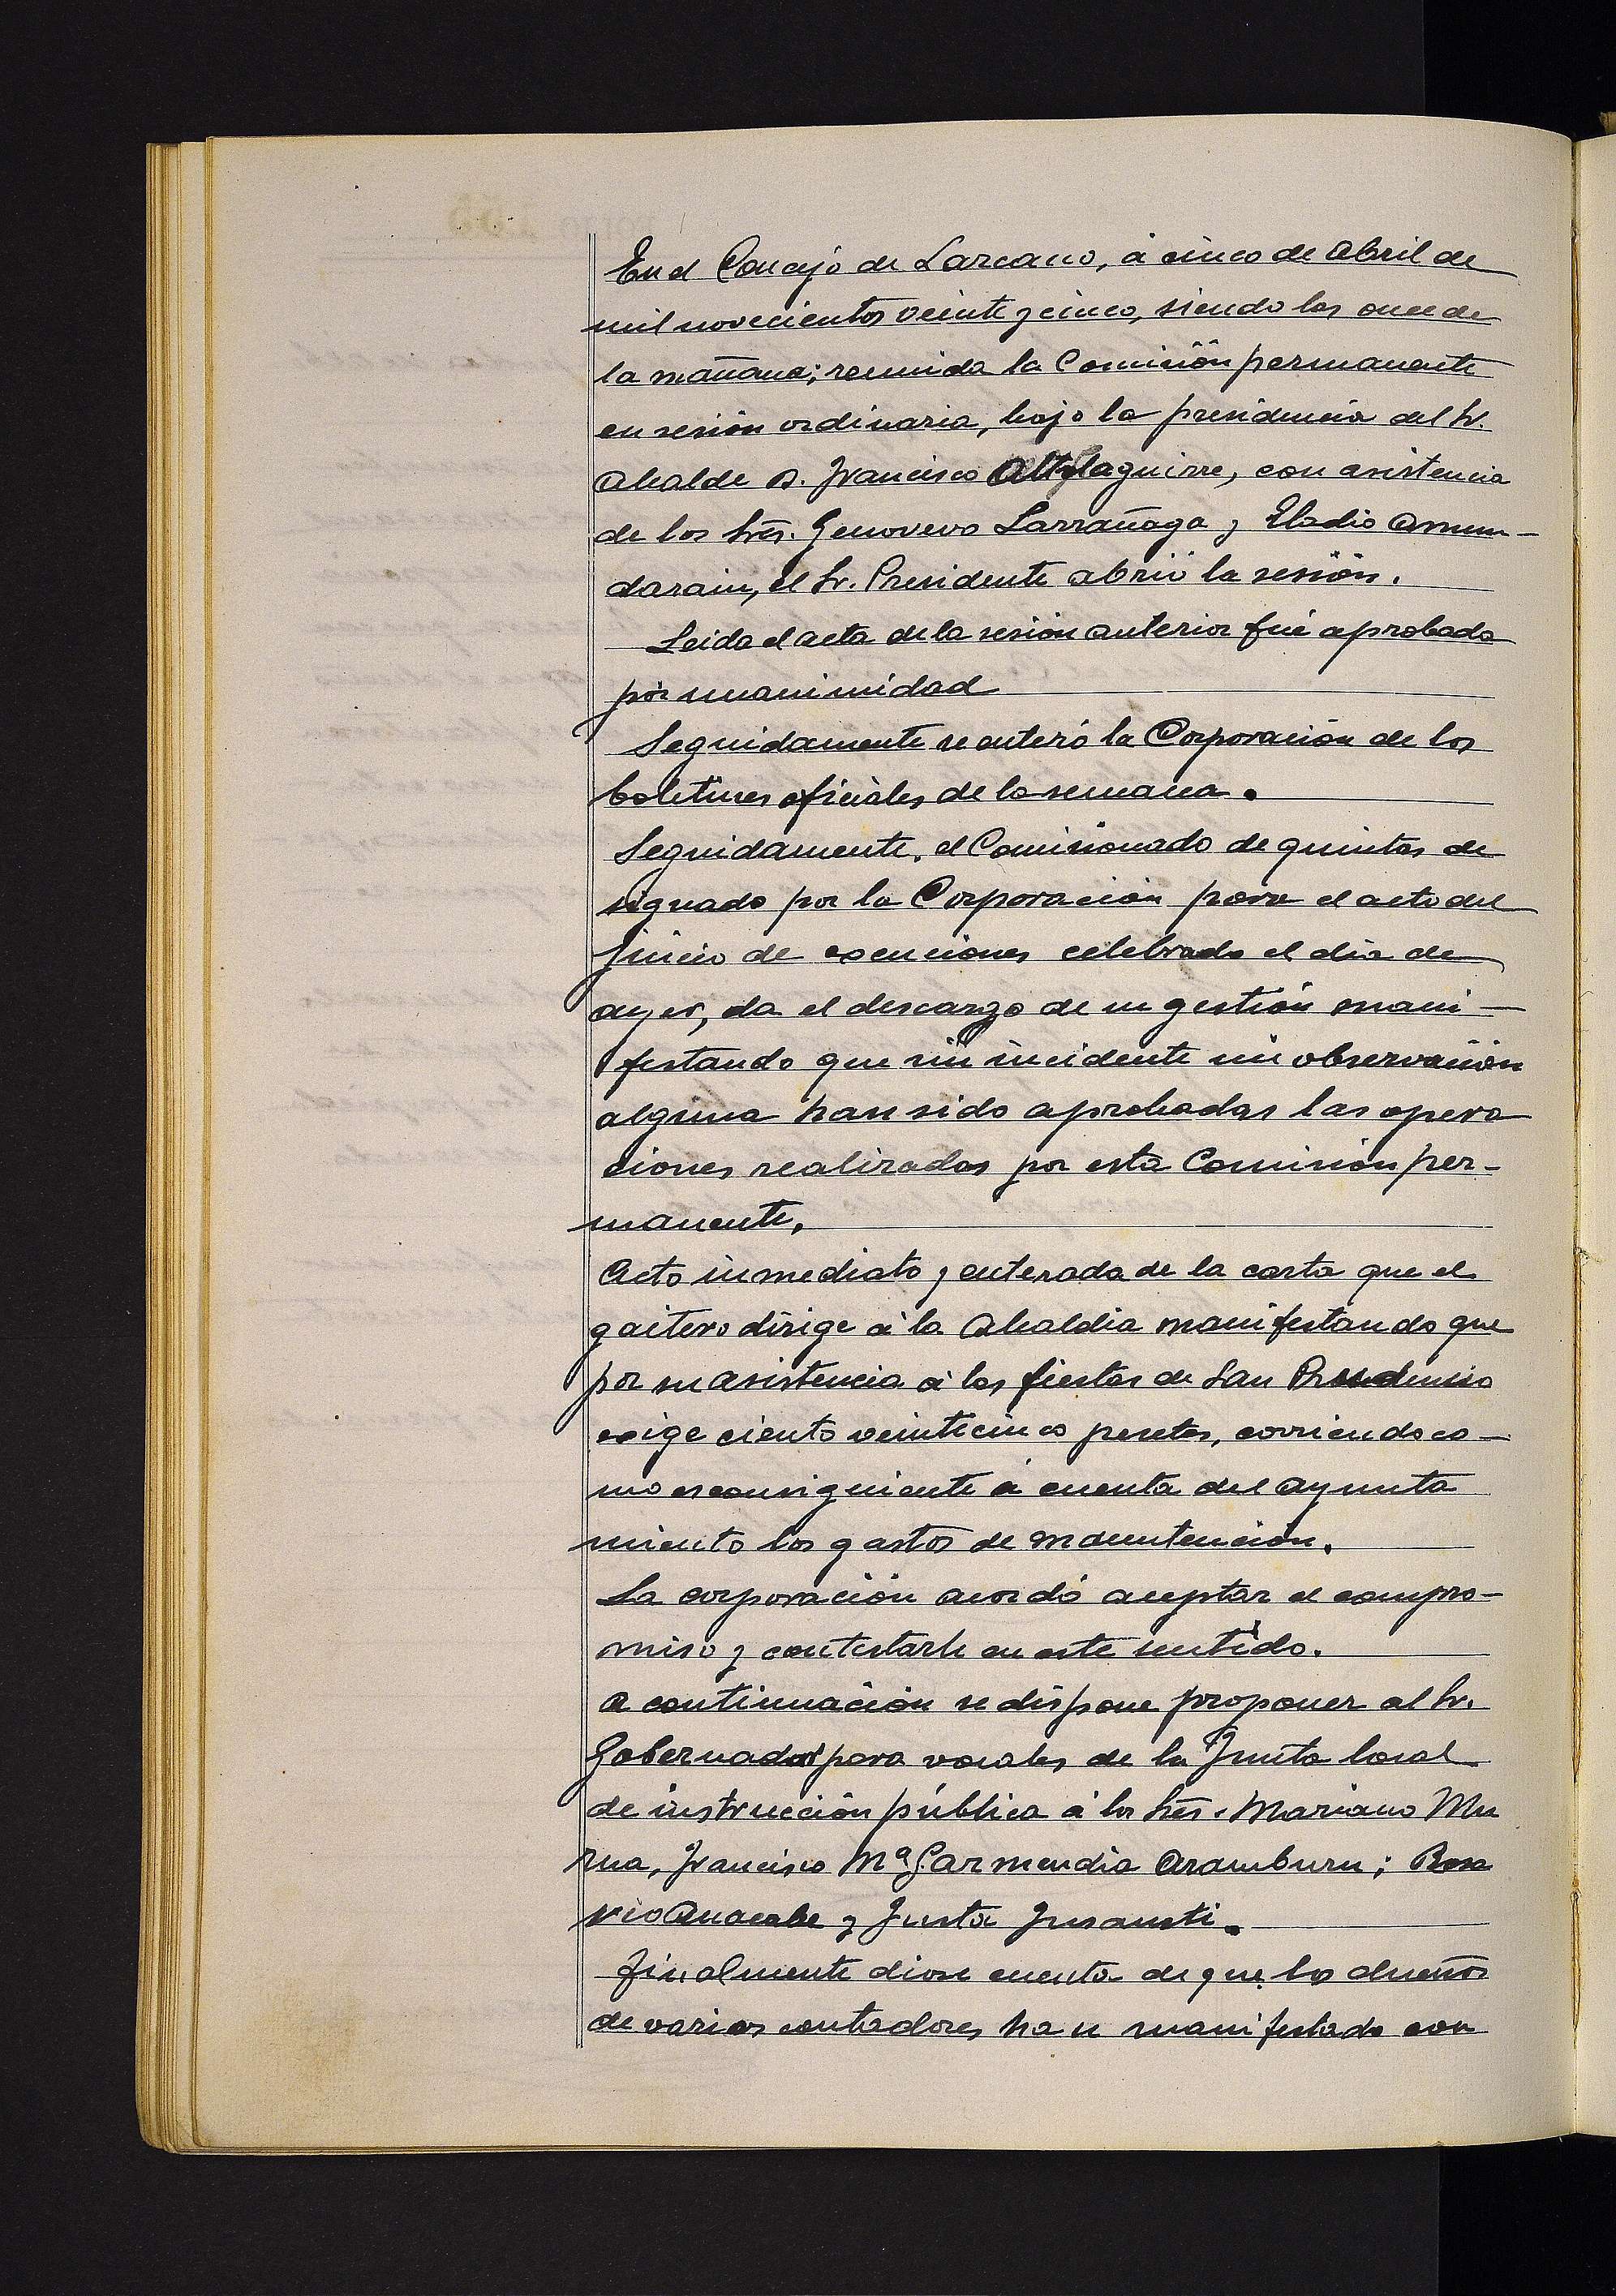 En el Concejo de Lazcano, á cinco de Abril de
mil novecientos veinte y cinco, siendo las once de
la mañana; reunida la Comisión permanente
en sesión ordinaria, bajo la presidencia del Sr.
Alcalde D. Francisco Altolaguirre, con asistencia
de los Srēs. Genoveva Larrañaga y Eladio Amun-
darain, el Sr. Presidente abrió la sesión.
Leida el acta de la sesión anterior fué aprobada
por unanimidad
Seguidamente se enteró la Corporación de los
boletines oficiales de la semana.
Seguidamente, el Comisionado de quintas de
signado por la Corporación para el acto del
juicio de exenciones celebrado el dia de
ayer, da el descargo de su gestión mani-
festando que sin incidente ni observación
alguna han sido aprobadas las opera
ciones realizadas por esta Comisión per-
manente.
Acto inmediato y enterada de la carta que el
gaitero dirige á la Alcaldia manifestando que
por su asistencia á las fiestas de San Prudencio
exige ciento veinticinco pesetas, corriendo co-
mo es consiguiente á cuenta del Ayunta
miento los gastos de manutención.
La corporación acordó aceptar el compro-
miso y contestarle en este sentido.
A continuación se dispone proponer al Sr.
Gobernador para vocales de la Junta local
de instrucción pública á los Srēs. Mariano Mu
rua, Francisco Mª Garmendia Aramburu; Rosa
rio y Justa Insausti.
Finalmente diose cuenta de que los dueños
de varios contadores han manifestado con